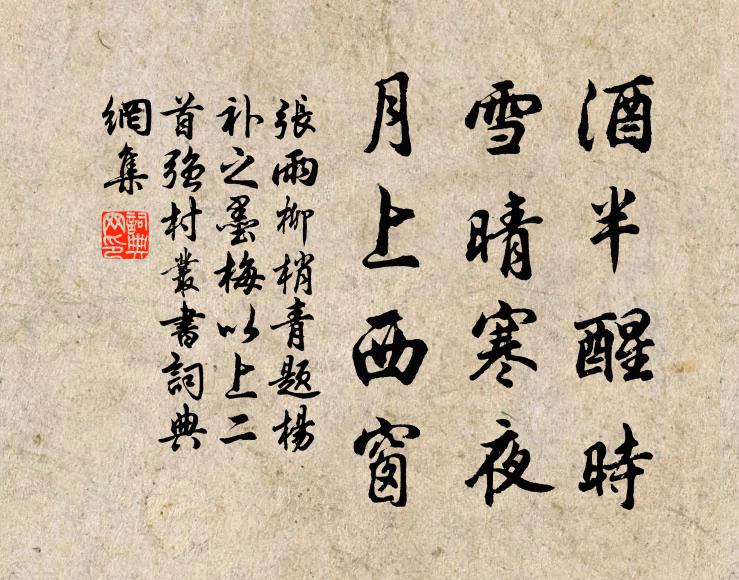 酒半醒時
雪晴寒夜
月上西窗
張雨柳梢青題楊
补之墨梅以上二
首强村叢書詞典
網集
詞典網印